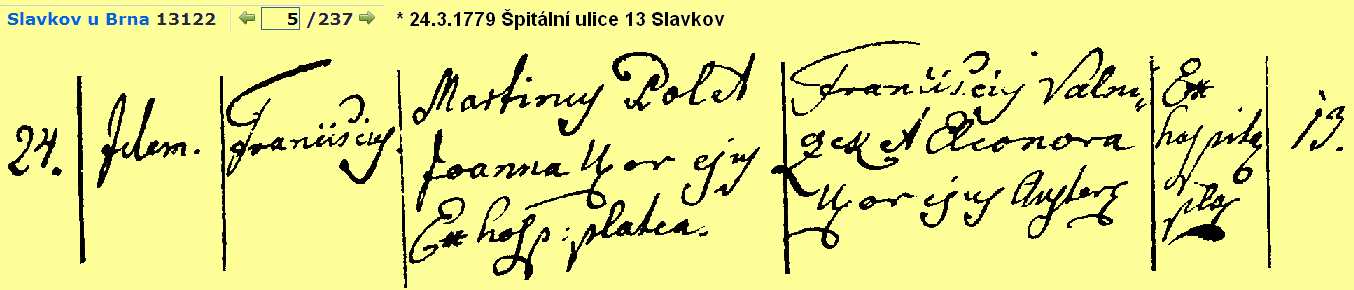 Slavkov u Brna 13122 5 /237 * 24.3.1779 Špitální ulice 13 Slavkov
24. Idem. Franciscus. Martinus Polet Franciscus Valni= Ex 13.
Joanna Uxor ejus gek et Eleonora hospita
Ex hosp: platea. Uxor ejus Austerl plat